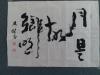 月是
故
鄉明